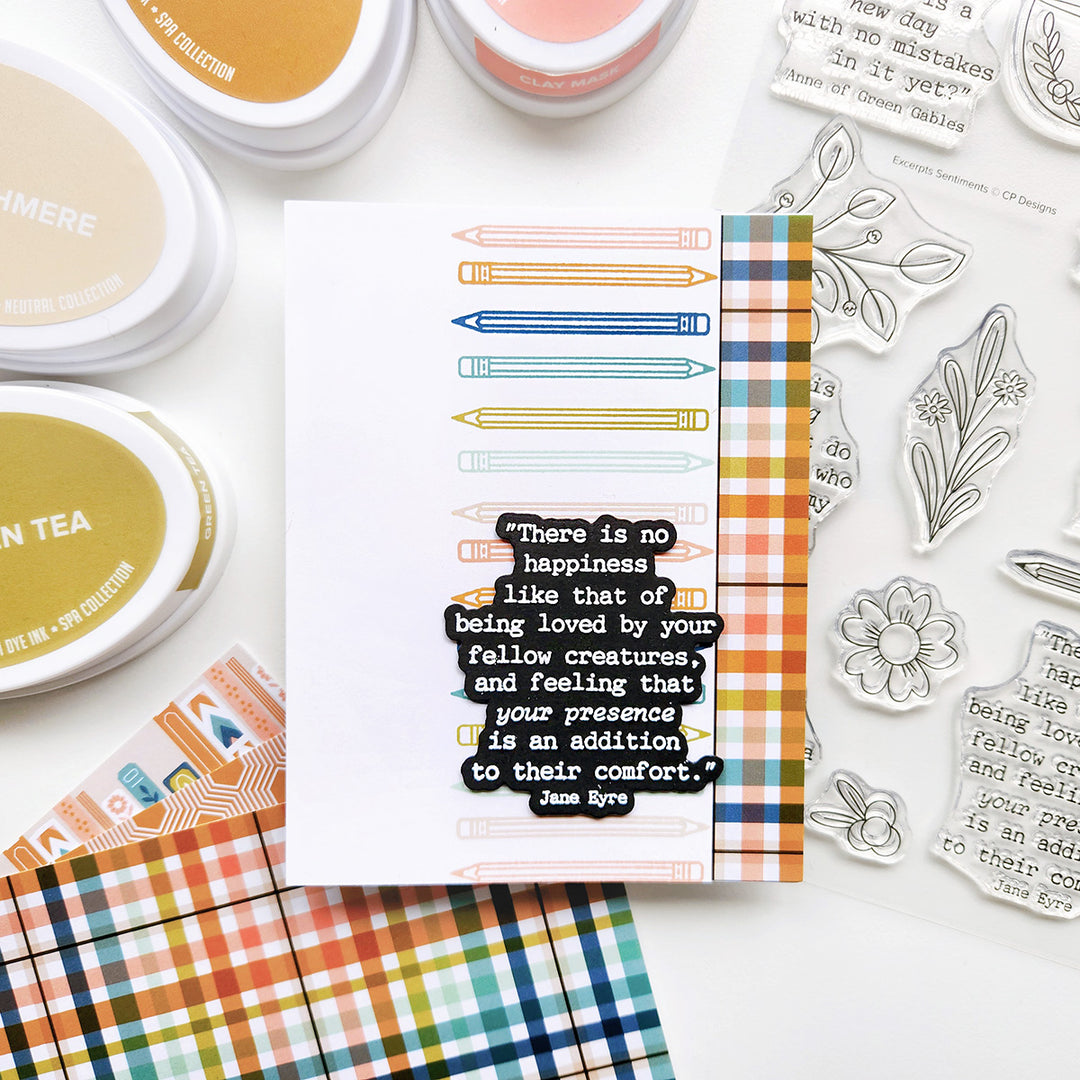 SPA COLLECTION
CLAY MASK
is a
new day
with no mistakes
in it yet?"
"Anne of Green Gables
Excerpts Sentiments © CP Designs
NEUTRAL COLLECTION
TEA
GREEN TEA
DYE INK ★ SPA COLLECTION
01
"There is no
happiness
like that of
being loved by your
fellow creatures,
and feeling that
your presence
is an addition
to their comfort."
Jane Eyre
is
do
who
my
like
being
and
your
is an
to their
Jane Eyre